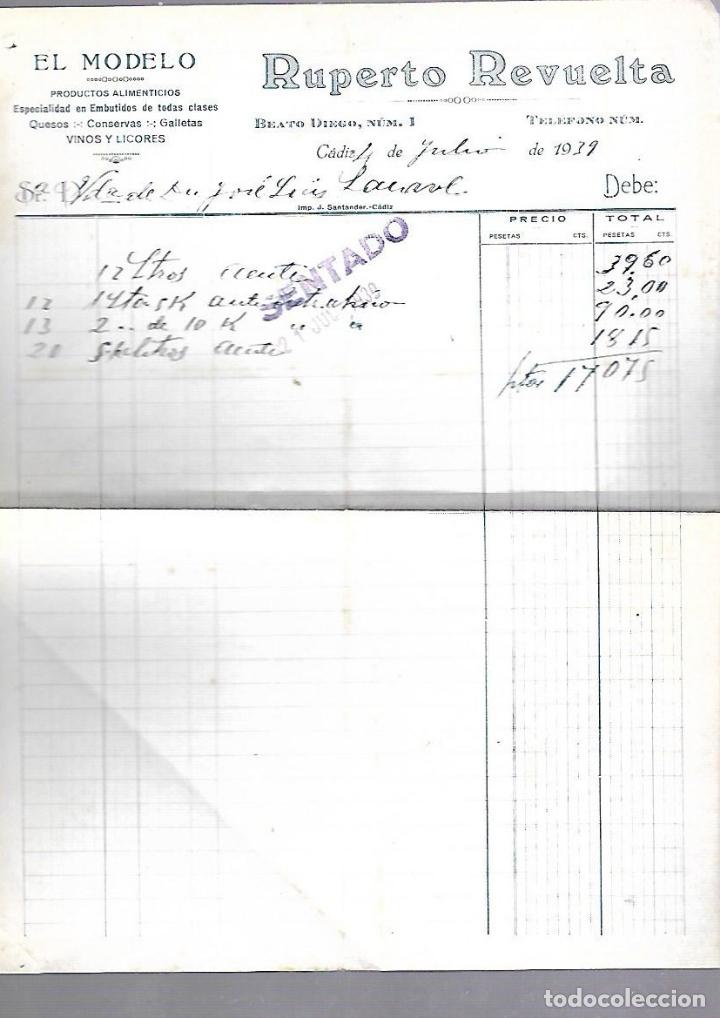 EL MODELO
PRODUCTOS ALIMENTICIOS
Especialidad en Embutidos de todas clases
Quesos :-: Conservas :-: Galletas
VINOS Y LICORES
Ruperto Revuelta
BEATO DIEGO, NÚM. 1 TELEFONO NÚM.
Cádiz 4 de Julio de 1939
Sr. D. Vda de Dn José Luis Debe:
Imp. J. Santander.-Cádiz
PRECIO TOTAL
PESETAS CTS. PESETAS CTS.
SENTADO
21 JUL 1939
12 Ltros 39,60
12 23,00
13 2 " de 10 K " " 90.00
20 5 litros 18 15
ptas 170 75
todocoleccion
todocoleccion.net